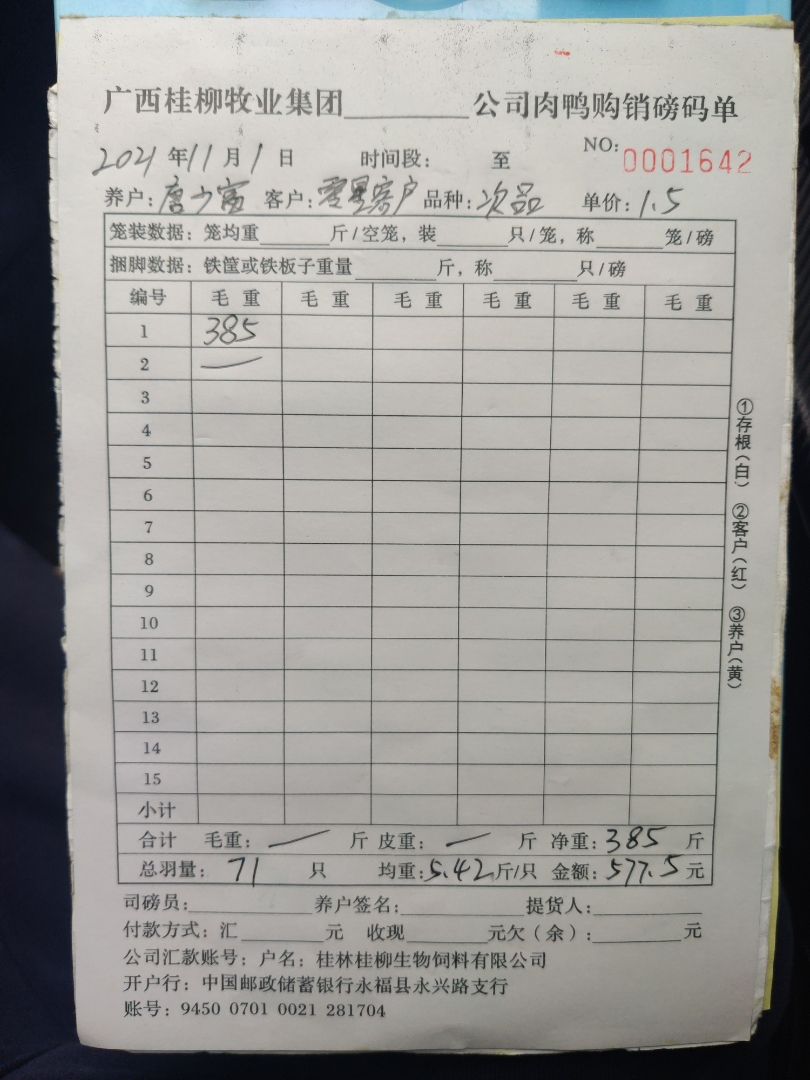 广西桂柳牧业集团________公司肉鸭购销磅码单
2021年11月1日 时间段: 至 NO:0001642
养户:唐少富 客户:零星客户 品种:次品 单价:1.5
笼装数据:笼均重______斤/空笼,装______只/笼,称______笼/磅
捆脚数据:铁筐或铁板子重量______斤,称______只/磅
编号 毛重 毛重 毛重 毛重 毛重 毛重
1 385
2 —
3
4
5
6
7
8
9
10
11
12
13
14
15
小计
合计 毛重:— 斤 皮重:— 斤 净重:385 斤
总羽量:71 只 均重:5.42斤/只 金额:577.5元
司磅员:________养户签名:________提货人:________
付款方式:汇______元 收现______元欠(余):______元
公司汇款账号:户名:桂林桂柳生物饲料有限公司
开户行:中国邮政储蓄银行永福县永兴路支行
账号:9450 0701 0021 281704
①存根(白) ②客户(红) ③养户(黄)